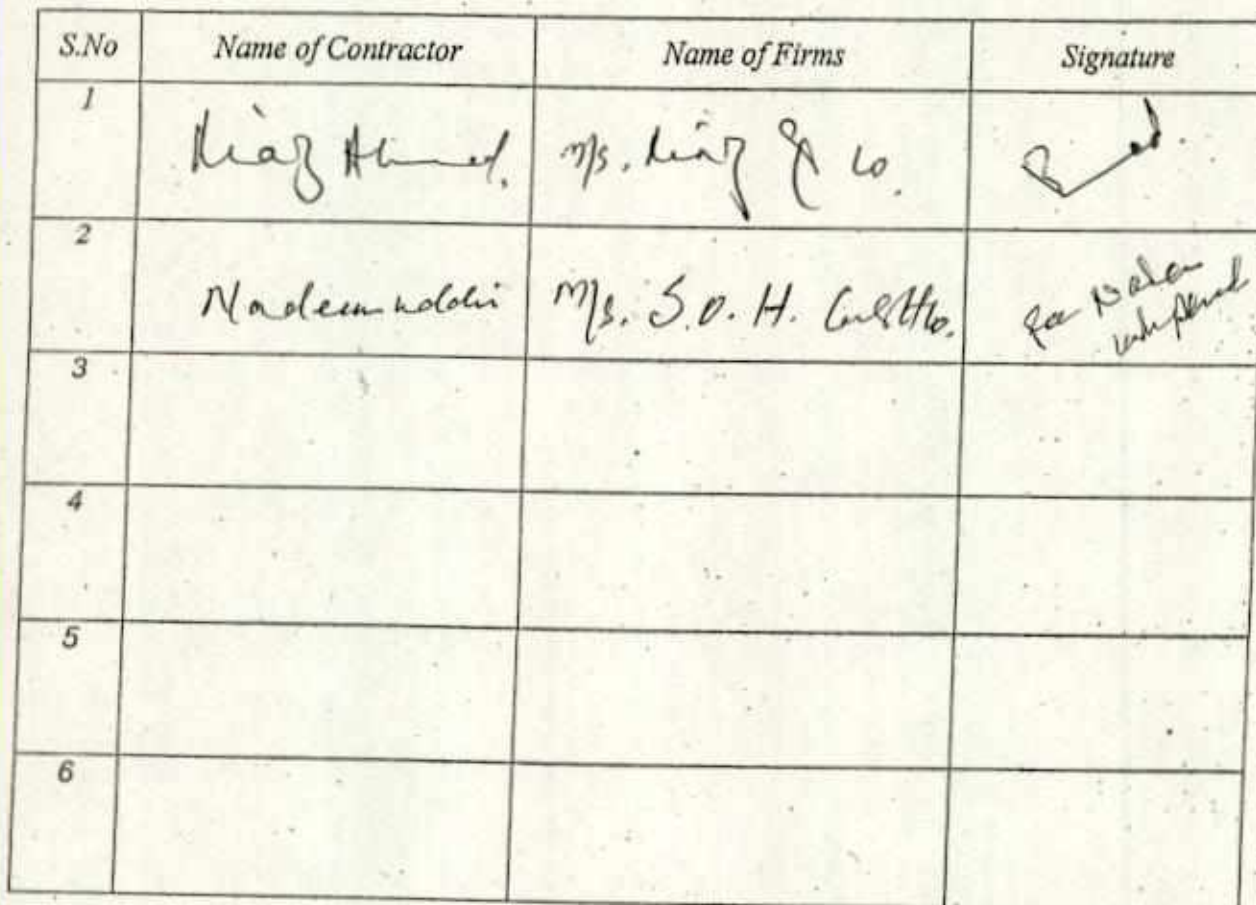 S.No Name of Contractor Name of Firms Signature
1
Niaz Ahmed. M/s. Niaz & Co.
2
Nadeemuddin M/s. S.D.H.
3
4
5
6